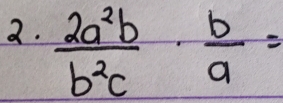 2. \frac{2a²b}{b²c} · \frac{b}{a} =